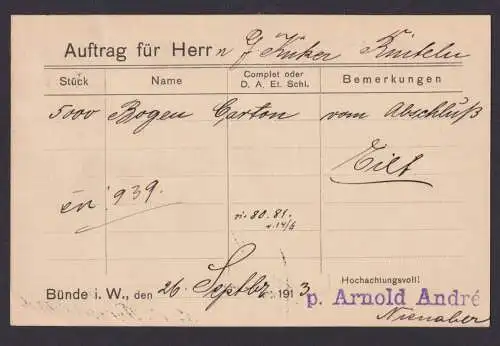 Auftrag für Herrn J Küker Rinteln
Stück Name Complet oder D. A. Et. Schl. Bemerkungen
5000 Bogen Carton vom Abschluß
Eilt
939.
80. 81.
14/6
Bünde i. W., den 26. Septbr. 1913
Hochachtungsvoll!
p. Arnold André
Nienaber